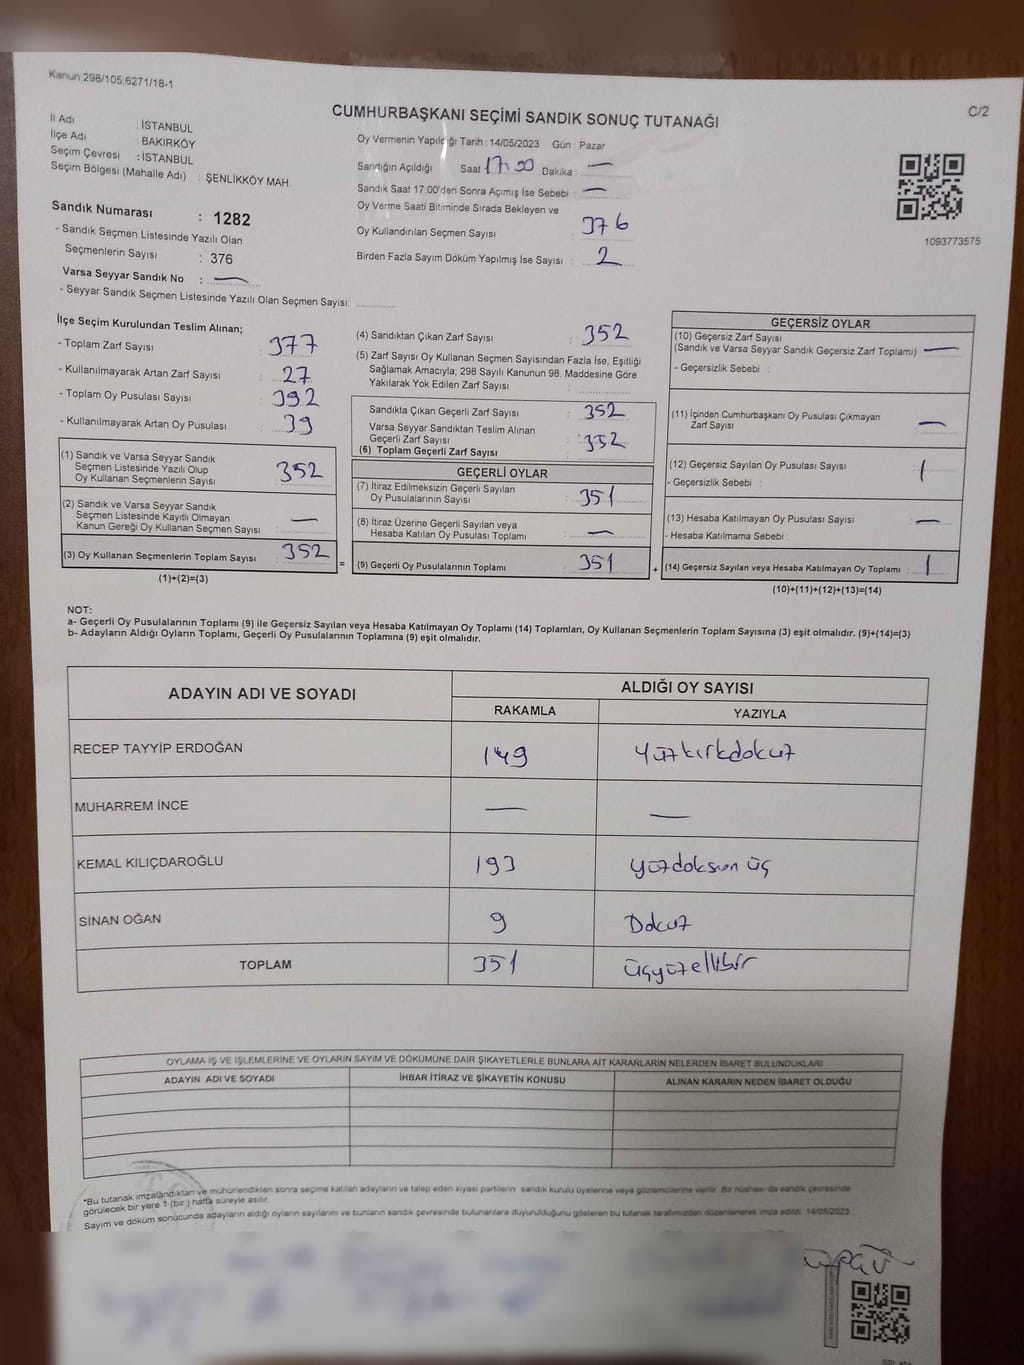 Kanun:298/105,6271/18-1
C/2
CUMHURBAŞKANI SEÇİMİ SANDIK SONUÇ TUTANAĞI
İl Adı : İSTANBUL
İlçe Adı : BAKIRKÖY
Seçim Çevresi : İSTANBUL
Seçim Bölgesi (Mahalle Adı) : ŞENLİKKÖY MAH.
Sandık Numarası : 1282
- Sandık Seçmen Listesinde Yazılı Olan
Seçmenlerin Sayısı : 376
Varsa Seyyar Sandık No : —
- Seyyar Sandık Seçmen Listesinde Yazılı Olan Seçmen Sayısı:
Oy Vermenin Yapıldığı Tarih : 14/05/2023 Gün : Pazar
Sandığın Açıldığı Saat 17:00 Dakika : —
Sandık Saat 17.00'den Sonra Açımış İse Sebebi : —
Oy Verme Saati Bitiminde Sırada Bekleyen ve
Oy Kullandırılan Seçmen Sayısı : 376
Birden Fazla Sayım Döküm Yapılmış İse Sayısı : 2
1093773575
İlçe Seçim Kurulundan Teslim Alınan;
- Toplam Zarf Sayısı : 377
- Kullanılmayarak Artan Zarf Sayısı : 27
- Toplam Oy Pusulası Sayısı : 392
- Kullanılmayarak Artan Oy Pusulası : 39
(1) Sandık ve Varsa Seyyar Sandık
Seçmen Listesinde Yazılı Olup
Oy Kullanan Seçmenlerin Sayısı : 352
(2) Sandık ve Varsa Seyyar Sandık
Seçmen Listesinde Kayıtlı Olmayan
Kanun Gereği Oy Kullanan Seçmen Sayısı : —
(3) Oy Kullanan Seçmenlerin Toplam Sayısı : 352
(1)+(2)=(3)
(4) Sandıktan Çıkan Zarf Sayısı : 352
(5) Zarf Sayısı Oy Kullanan Seçmen Sayısından Fazla İse, Eşitliği
Sağlamak Amacıyla; 298 Sayılı Kanunun 98. Maddesine Göre
Yakılarak Yok Edilen Zarf Sayısı :
Sandıkta Çıkan Geçerli Zarf Sayısı : 352
Varsa Seyyar Sandıktan Teslim Alınan
Geçerli Zarf Sayısı : 352
(6) Toplam Geçerli Zarf Sayısı :
GEÇERLİ OYLAR
(7) İtiraz Edilmeksizin Geçerli Sayılan
Oy Pusulalarının Sayısı : 351
(8) İtiraz Üzerine Geçerli Sayılan veya
Hesaba Katılan Oy Pusulası Toplamı : —
= (9) Geçerli Oy Pusulalarının Toplamı : 351
GEÇERSİZ OYLAR
(10) Geçersiz Zarf Sayısı
(Sandık ve Varsa Seyyar Sandık Geçersiz Zarf Toplamı) : —
- Geçersizlik Sebebi :
(11) İçinden Cumhurbaşkanı Oy Pusulası Çıkmayan
Zarf Sayısı : —
(12) Geçersiz Sayılan Oy Pusulası Sayısı : 1
- Geçersizlik Sebebi :
(13) Hesaba Katılmayan Oy Pusulası Sayısı : —
- Hesaba Katılmama Sebebi :
+ (14) Geçersiz Sayılan veya Hesaba Katılmayan Oy Toplamı : 1
(10)+(11)+(12)+(13)=(14)
NOT:
a- Geçerli Oy Pusulalarının Toplamı (9) ile Geçersiz Sayılan veya Hesaba Katılmayan Oy Toplamı (14) Toplamları, Oy Kullanan Seçmenlerin Toplam Sayısına (3) eşit olmalıdır. (9)+(14)=(3)
b- Adayların Aldığı Oyların Toplamı, Geçerli Oy Pusulalarının Toplamına (9) eşit olmalıdır.
ADAYIN ADI VE SOYADI
ALDIĞI OY SAYISI
RAKAMLA YAZIYLA
RECEP TAYYİP ERDOĞAN 149 Yüzkırkdokuz
MUHARREM İNCE — —
KEMAL KILIÇDAROĞLU 193 yüzdoksan üç
SİNAN OĞAN 9 Dokuz
TOPLAM 351 üçyüzellibir
OYLAMA İŞ VE İŞLEMLERİNE VE OYLARIN SAYIM VE DÖKÜMÜNE DAİR ŞİKAYETLERLE BUNLARA AİT KARARLARIN NELERDEN İBARET BULUNDUKLARI
ADAYIN ADI VE SOYADI İHBAR İTİRAZ VE ŞİKAYETİN KONUSU ALINAN KARARIN NEDEN İBARET OLDUĞU
*Bu tutanak imzalandıktan ve mühürlendikten sonra seçime katılan adayların ve talep eden siyasi partilerin sandık kurulu üyelerine veya gözlemcilerine verilir. Bir nüshası da sandık çevresinde
görülecek bir yere 1 (bir) hafta süreyle asılır.
Sayım ve döküm sonucunda adayların aldığı oyların sayılarını ve bunların sandık çevresinde bulunanlara duyurulduğunu gösteren bu tutanak tarafımızdan düzenlenerek imza edildi. 14/05/2023